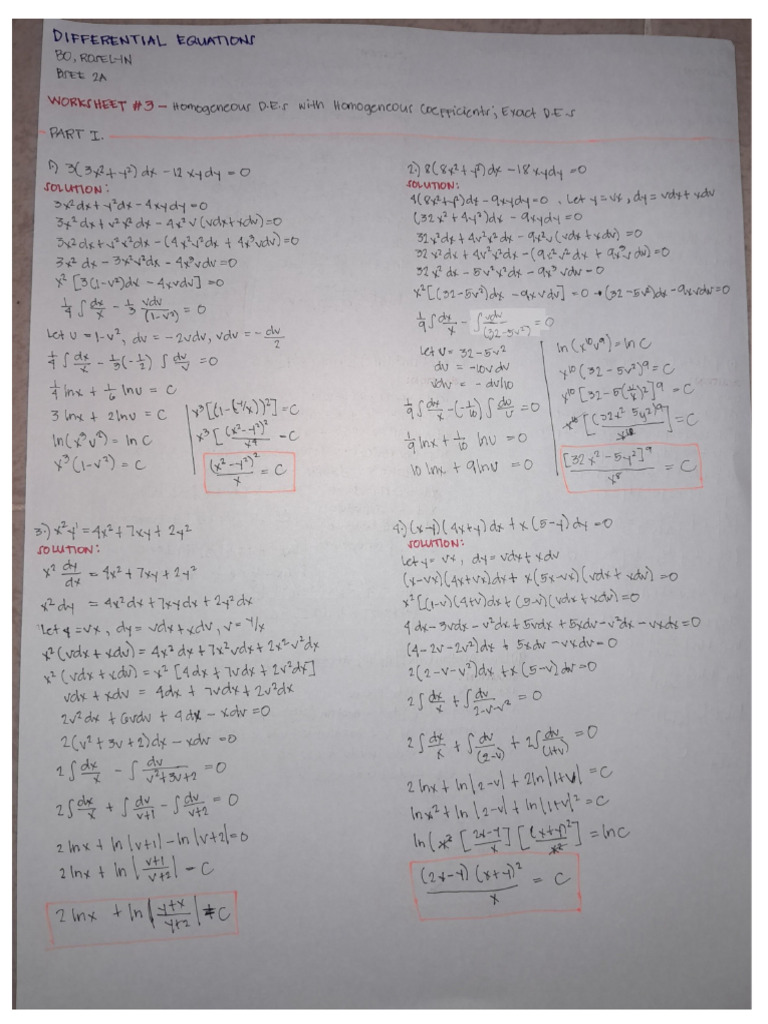 DIFFERENTIAL EQUATIONS
BO, ROSELYN
BSEE 2A
WORKSHEET #3 – Homogeneous D.E.s with Homogeneous Coefficients; Exact D.E.s
PART I.
1.) 3(3x²+y²)dx – 12xydy = 0
SOLUTION:
3x²dx + y²dx – 4xydy = 0
3x²dx + v²x²dx – 4x²v(vdx+xdv) = 0
3x²dx + v²x²dx – (4x²v²dx + 4x³vdv) = 0
3x²dx – 3x²v²dx – 4x³vdv = 0
x²[3(1-v²)dx – 4xvdv] = 0
1/4 ∫ dx/x – 1/3 ∫ vdv/(1-v²) = 0
Let u = 1-v², du = -2vdv, vdv = -du/2
1/4 ∫ dx/x – 1/3(-1/2) ∫ du/u = 0
1/4 lnx + 1/6 lnu = C
3 lnx + 2lnu = C
ln(x³u²) = ln C
x³(1-v²) = C
x³[(1-(y/x))²] = C
x³[(x²-y²)²/x⁴] = C
(x²-y²)²/x = C
2.) 8(8x²+y²)dx – 18xydy = 0
SOLUTION:
4(8x²+y²)dx – 9xydy = 0. Let y = vx, dy = vdx + xdv
(32x² + 4y²)dx – 9xydy = 0
32x²dx + 4v²x²dx – 9x²v(vdx + xdv) = 0
32x²dx + 4v²x²dx – (9x²v²dx + 9x³vdv) = 0
32x²dx – 5v²x²dx – 9x³vdv = 0
x²[(32-5v²)dx – 9xvdv] = 0 → (32-5v²)dx – 9xvdv = 0
1/9 ∫ dx/x – ∫ vdv/(32-5v²) = 0
Let u = 32-5v²
du = -10vdv
vdv = -du/10
1/9 ∫ dx/x – (-1/10) ∫ du/u = 0
1/9 lnx + 1/10 lnu = 0
10 lnx + 9lnu = 0
ln(x¹⁰u⁹) = ln C
x¹⁰(32-5v²)⁹ = C
x¹⁰[32-5(y/x)²]⁹ = C
[32x²-5y²]⁹/x⁸ = C
3.) x²y' = 4x² + 7xy + 2y²
SOLUTION:
x² dy/dx = 4x² + 7xy + 2y²
x²dy = 4x²dx + 7xydx + 2y²dx
Let y = vx, dy = vdx + xdv, v = y/x
x²(vdx + xdv) = 4x²dx + 7x²vdx + 2x²v²dx
x²(vdx + xdv) = x²[4dx + 7vdx + 2v²dx]
vdx + xdv = 4dx + 7vdx + 2v²dx
2v²dx + 6vdv + 4dx – xdv = 0
2(v² + 3v + 2)dx – xdv = 0
2 ∫ dx/x – ∫ dv/v²+3v+2 = 0
2 ∫ dx/x + ∫ dv/v+1 – ∫ dv/v+2 = 0
2 lnx + ln|v+1| – ln|v+2| = 0
2 lnx + ln|v+1/v+2| = C
2 lnx + ln|y+x/y+2| = C
4.) (x-y)(4x+y)dx + x(5-y)dy = 0
SOLUTION:
Let y = vx, dy = vdx + xdv
(x-vx)(4x+vx)dx + x(5x-vx)(vdx + xdv) = 0
x²[(1-v)(4+v)dx + (5-v)(vdx + xdv) = 0
4dx – 3vdx – v²dx + 5vdx + 5xdv – v²dx – vxdv = 0
(4-2v-2v²)dx + 5xdv – vxdv = 0
2(2-v-v²)dx + x(5-v)dv = 0
2 ∫ dx/x + ∫ dv/2-v-v² = 0
2 ∫ dx/x + ∫ dv/(2-v) + 2 ∫ dv/(1+v) = 0
2 lnx + ln|2-v| + 2ln|1+v| = C
lnx² + ln|2-v| + ln|1+v|² = C
ln(x²[2x-y/x][(x+y)²/x²] = ln C
(2x-y)(x+y)²/x = C